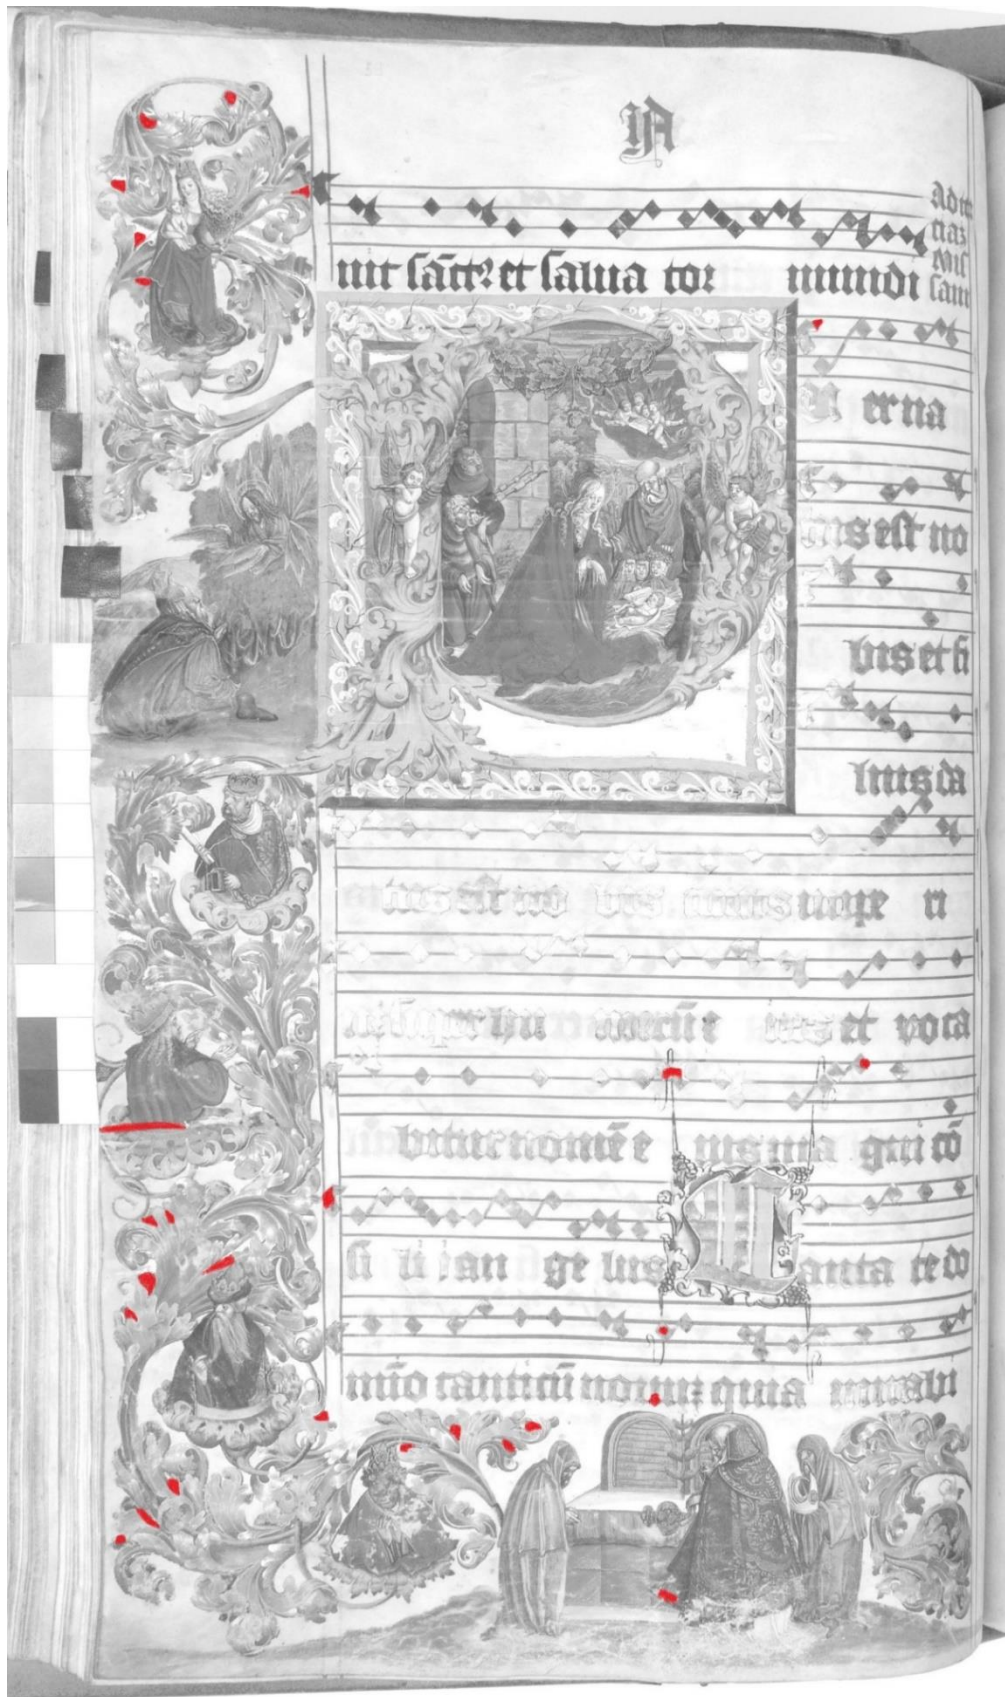 IA
uit sāctꝝ et salua tor mundi
Ad
missam
er na
tus est no
bis et fi
lius da
tus est no bis cuius impe ri
super hu merū e ius et voca
bitur nomē e ius ma gni cō
si li i an ge lus
anta te do
mīo canticū nouuꝫ quia mirabi